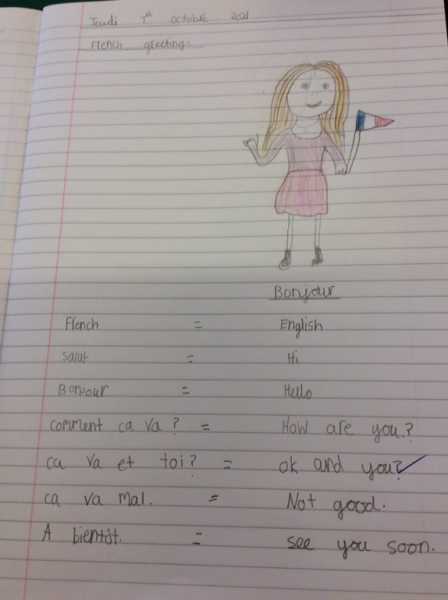 Jeudi 7th octobre 2021
French greetings
Bonjour
French = English
Salut = Hi
Bonjour = Hello
Comment ca va? = How are you?
ca va et toi? = ok and you?
ca va mal. = Not good.
A bientôt. = see you soon.